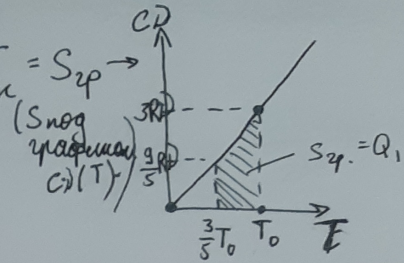 CD
= Sгр →
(Sпод
графиком
CD(T))
3R
9/5 R
Sгр. = Q₁
3/5 T₀
T₀
T